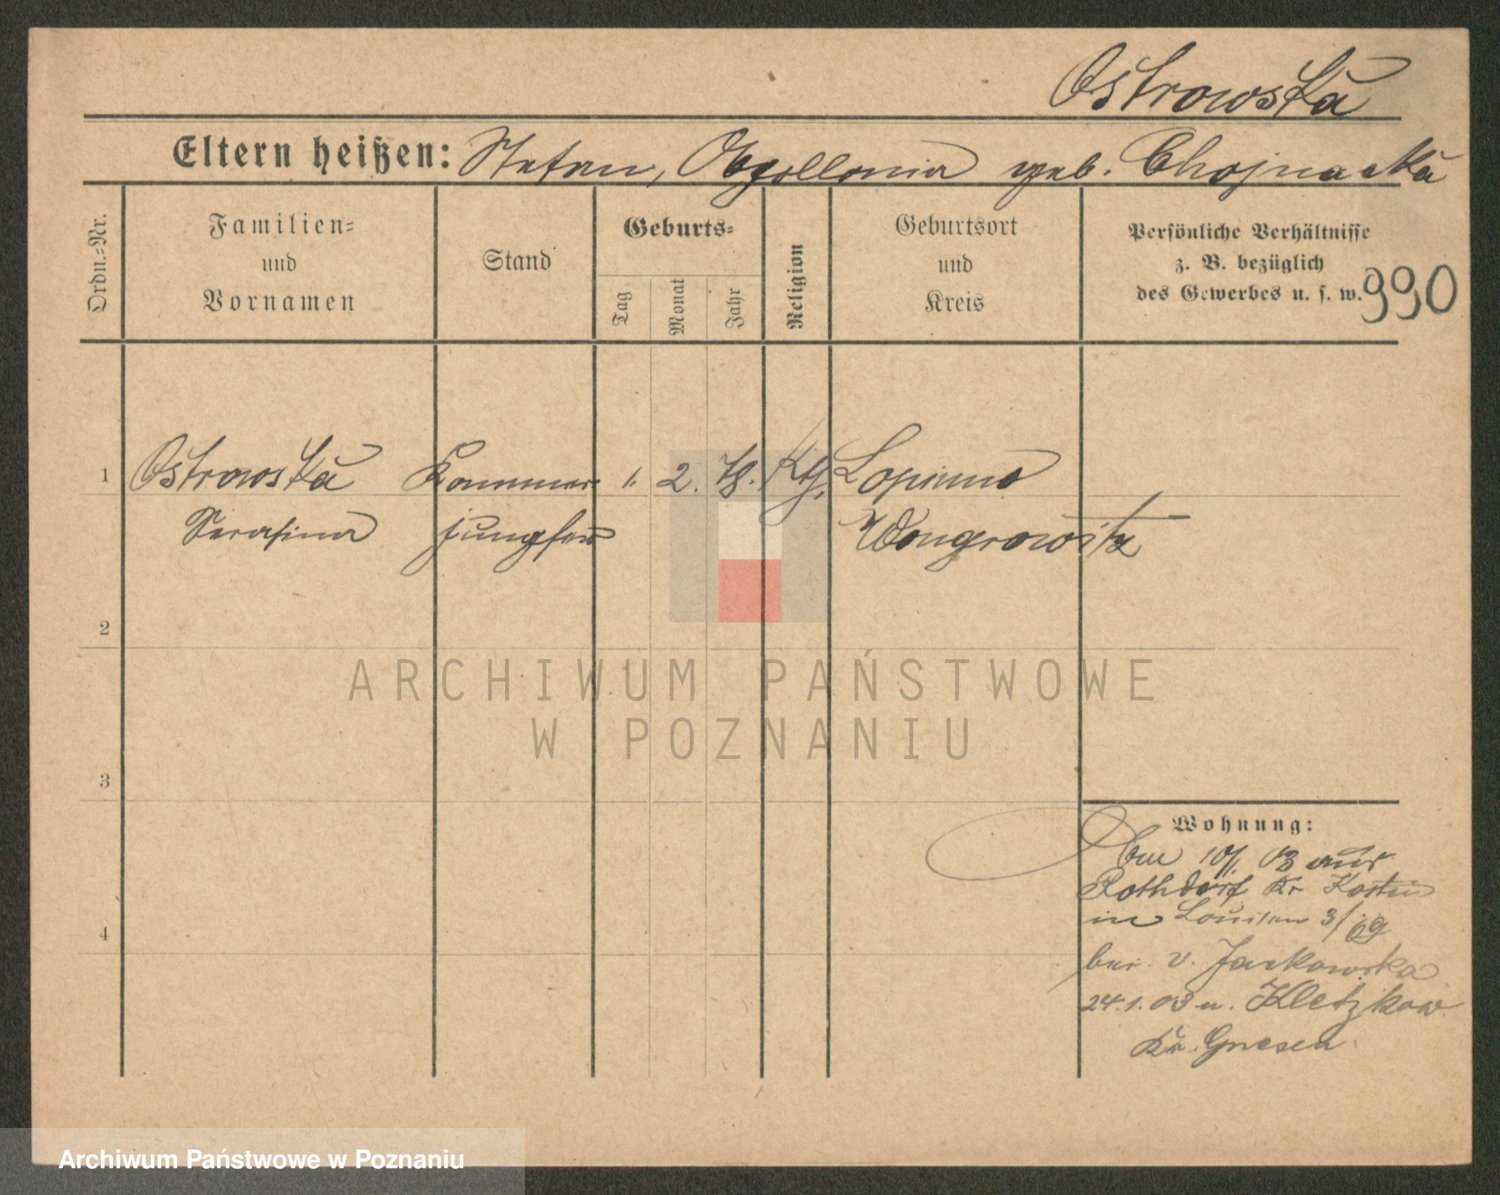 Ostrowska
Eltern heißen: Stefan, Apollonia geb. Chojnacka
Ordn.=Nr.
Familien=
und
Vornamen
Stand
Geburts=
Tag
Monat
Jahr
Religion
Geburtsort
und
Kreis
Persönliche Verhältnisse
z. B. bezüglich
des Gewerbes u. s. w.
990
1 Ostrowska Kammer 1. 2. 78. Kth. Lopinno
Serafina jungfer Wongrowitz
2
3
4
Wohnung:
Am 10/1. 03 aus
Rothdorf Kr Kosten
in Louisen 3/
bei v. Jackowska
24.1.03 n. Kletzkow
Kr. Gnesen
ARCHIWUM PAŃSTWOWE
W POZNANIU
Archiwum Państwowe w Poznaniu